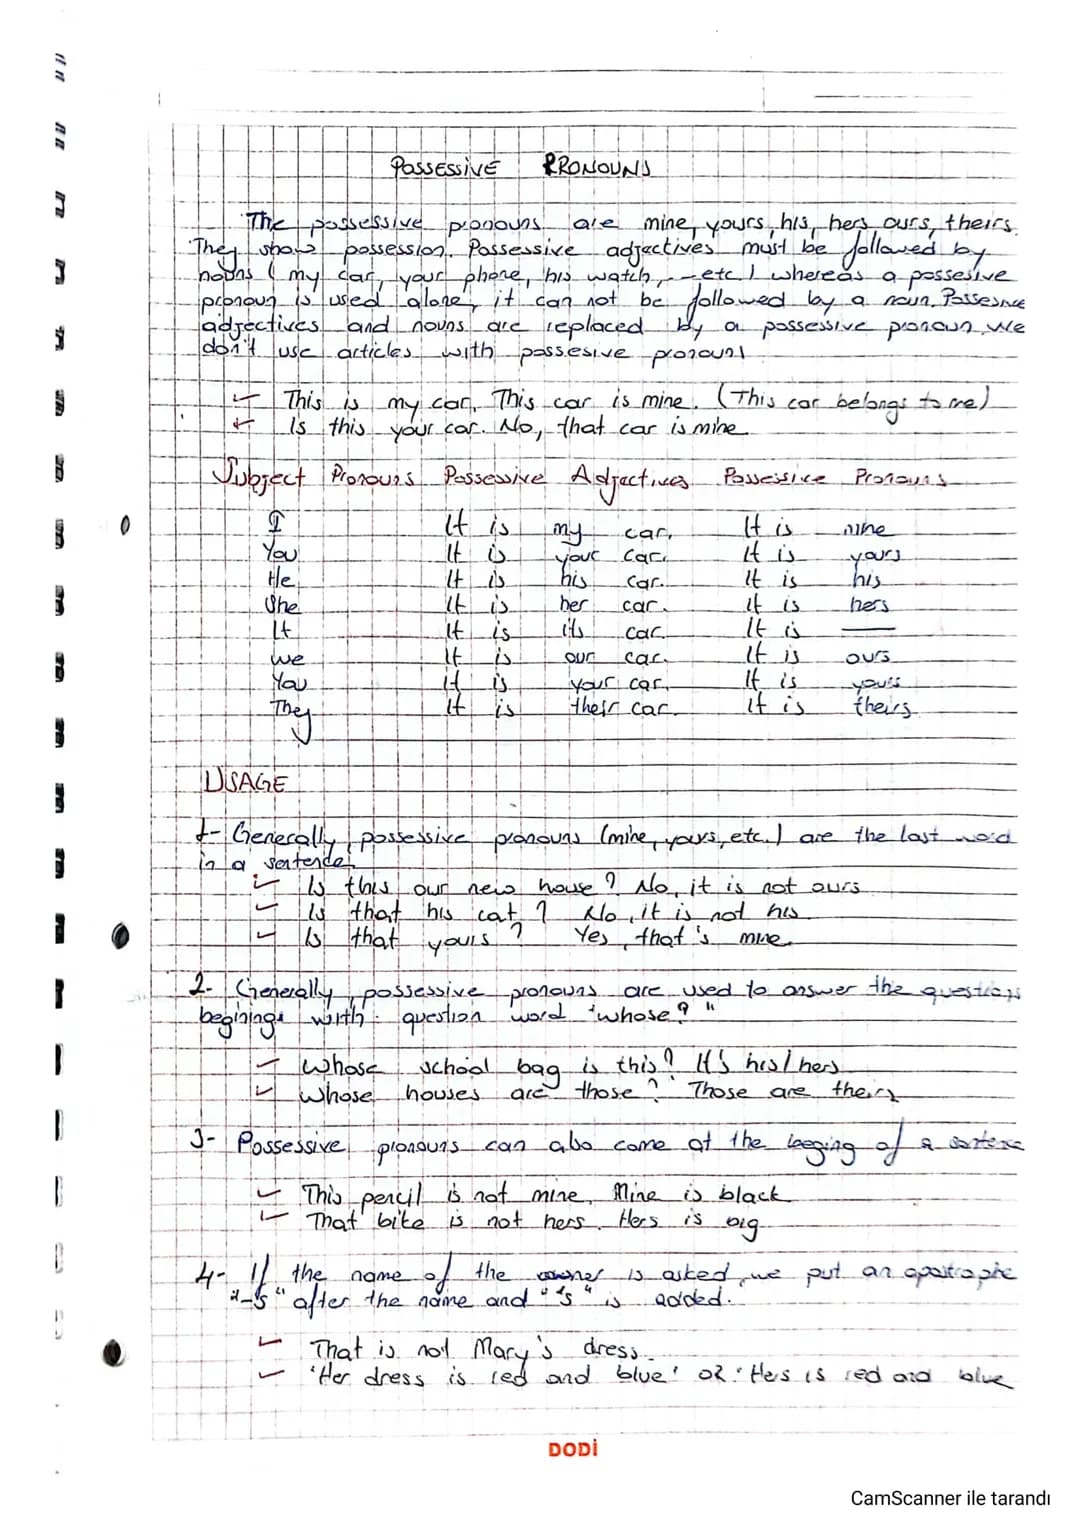 POSSESSIVE PRONOUNS
The possessive pronouns are mine, yours, his, hers, ours, theirs.
They show possession. Possessive adjectives must be followed by
nouns ( my car, your phone, his watch, --etc ) whereas a possesive
pronoun is used alone, it can not be followed by a noun. Possesive
adjectives and nouns are replaced by a possessive pronoun. We
don't use articles with possesive pronouns
This is my car. This car is mine. (This car belongs to me)
Is this your car. No, that car is mine
Subject Pronouns Possessive Adjectives Possessive Pronouns
I It is my car. It is mine
You It is your car. It is yours
He It is his car. It is his
She It is her car. It is hers
It It is its car. It is ——
we It is our car. It is ours
You It is your car. It is yours
They It is their car. It is theirs
USAGE
1- Generally, possessive pronouns (mine, yours, etc.) are the last word
in a sentence.
Is this our new house? No, it is not ours
Is that his cat? No, it is not his
Is that yours? Yes, that's mine
2- Generally, possessive pronouns are used to answer the questions
begining with question word "whose?"
Whose school bag is this? It's his/hers
Whose houses are those? Those are theirs
3- Possessive pronouns can also come at the beging of a sentence
This pencil is not mine. Mine is black
That bike is not hers. Hers is big
4- If the name of the owner is asked, we put an apostrophe
"-'s" after the name and "'s" is added.
That is not Mary's dress.
'Her dress is red and blue' OR 'Hers is red and blue
DODİ
CamScanner ile tarandı